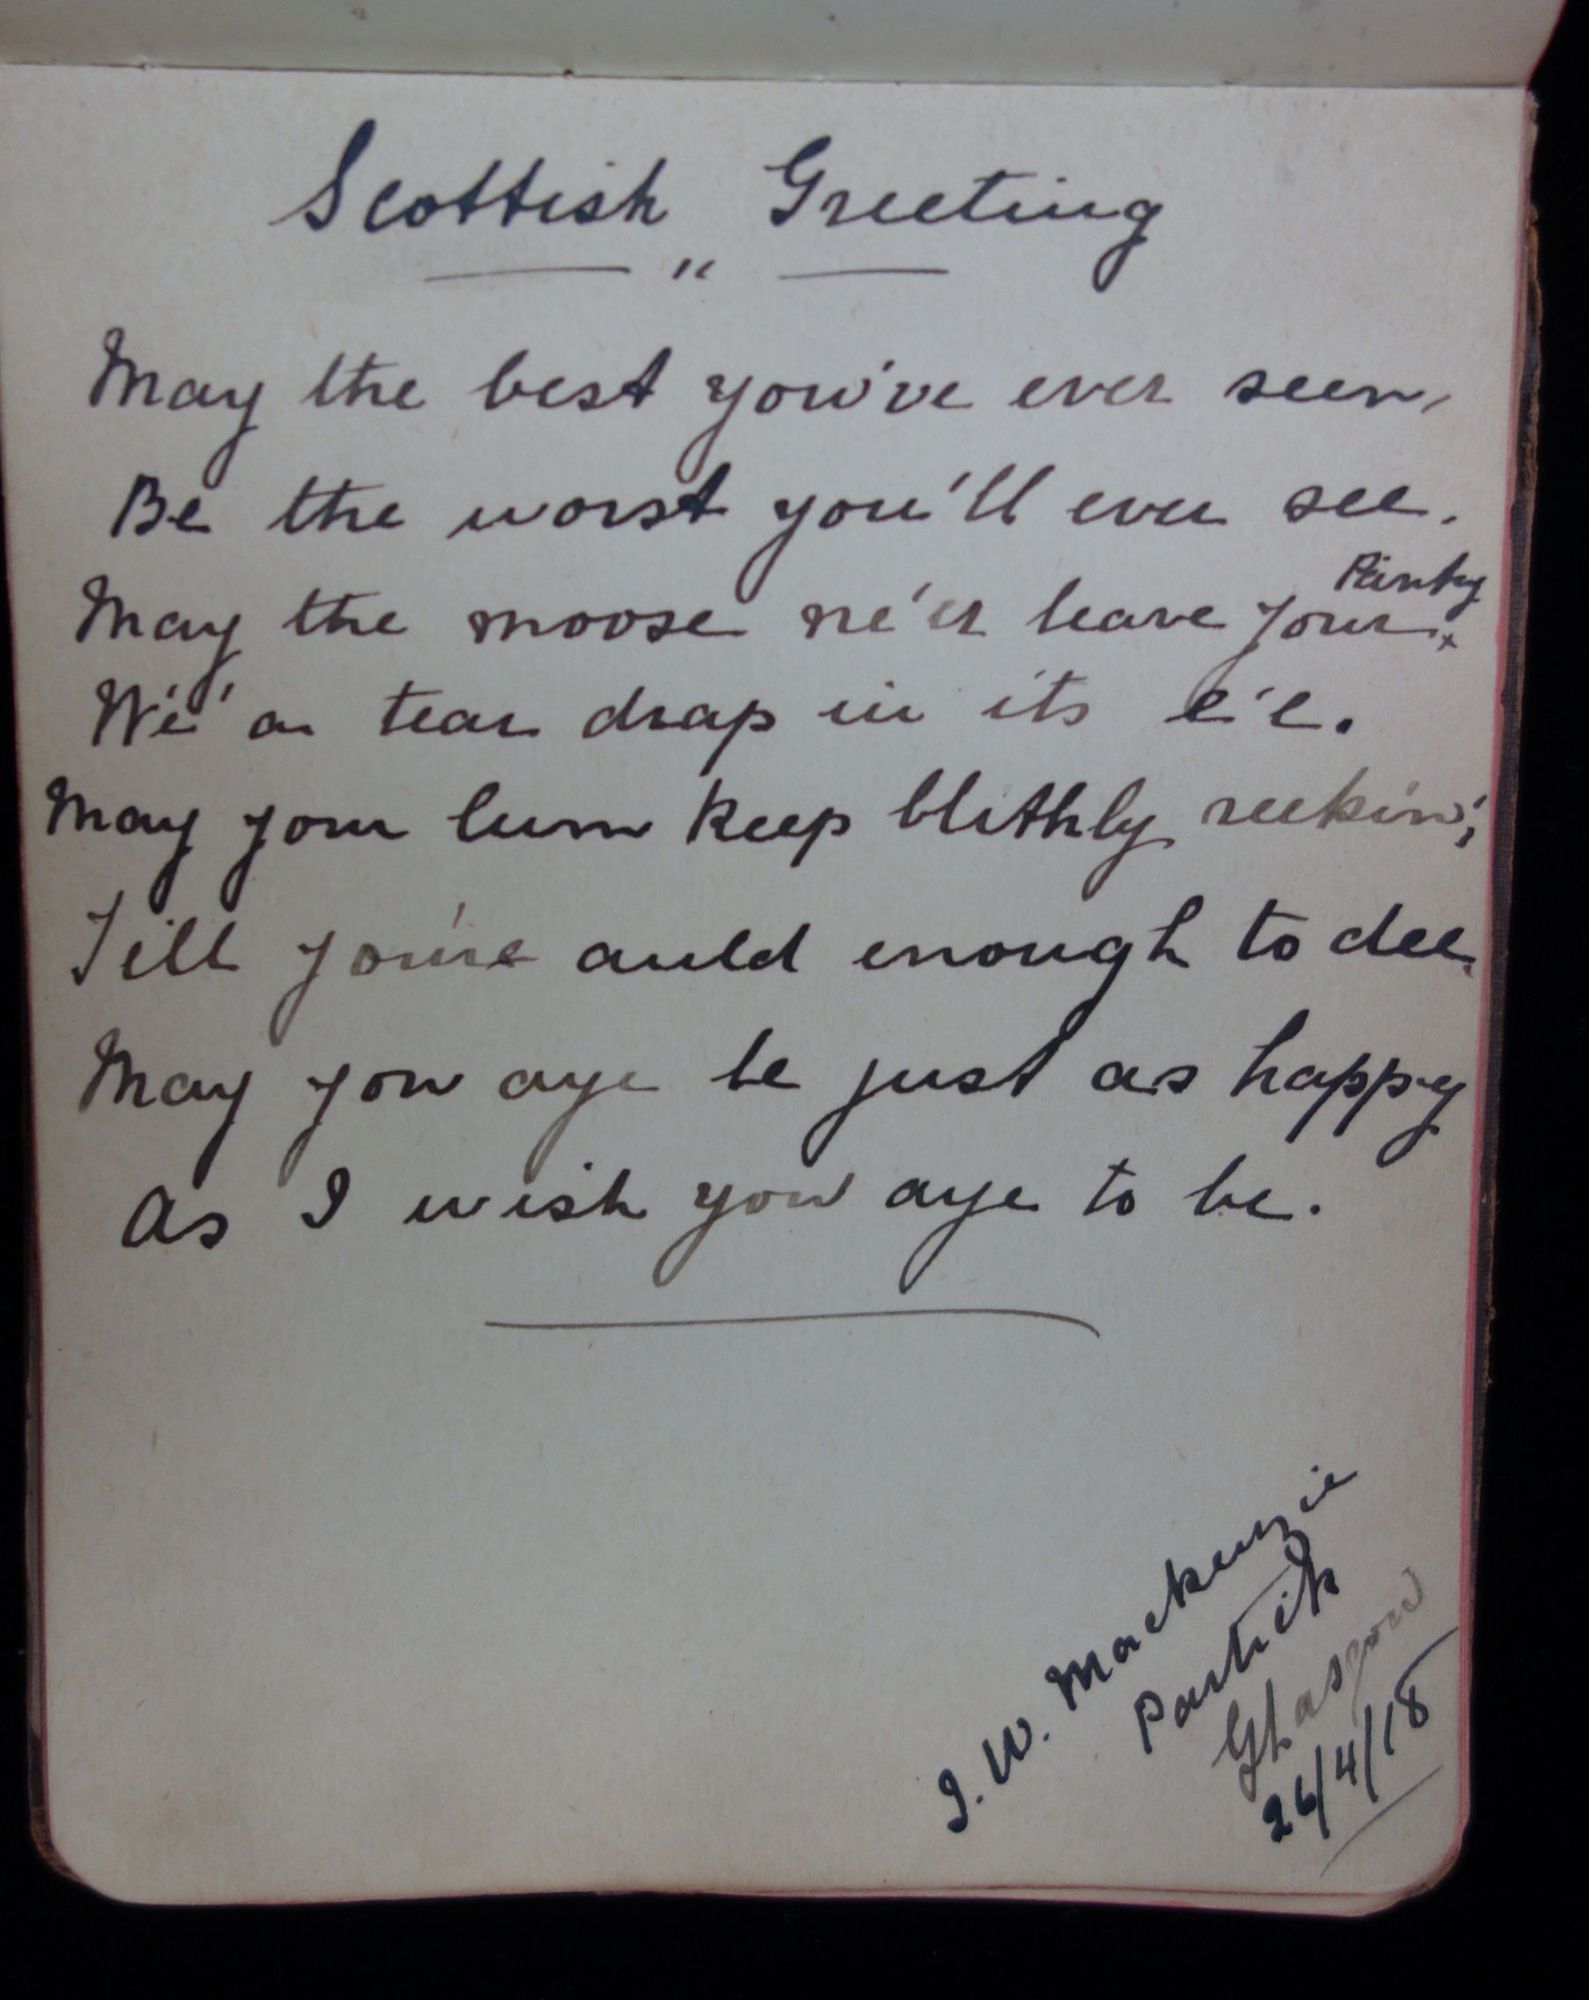 Scottish Greeting
"
May the best you've ever seen,
Be the worst you'll ever see.
May the moose ne'er leave your Pantry
Wi' a tear drap in its e'e.
May your lum keep blithly reekin';
Till you're auld enough to dee.
May you aye be just as happy
As I wish you aye to be.
J. W. Mackenzie
Partick
Glasgow
26/4/18